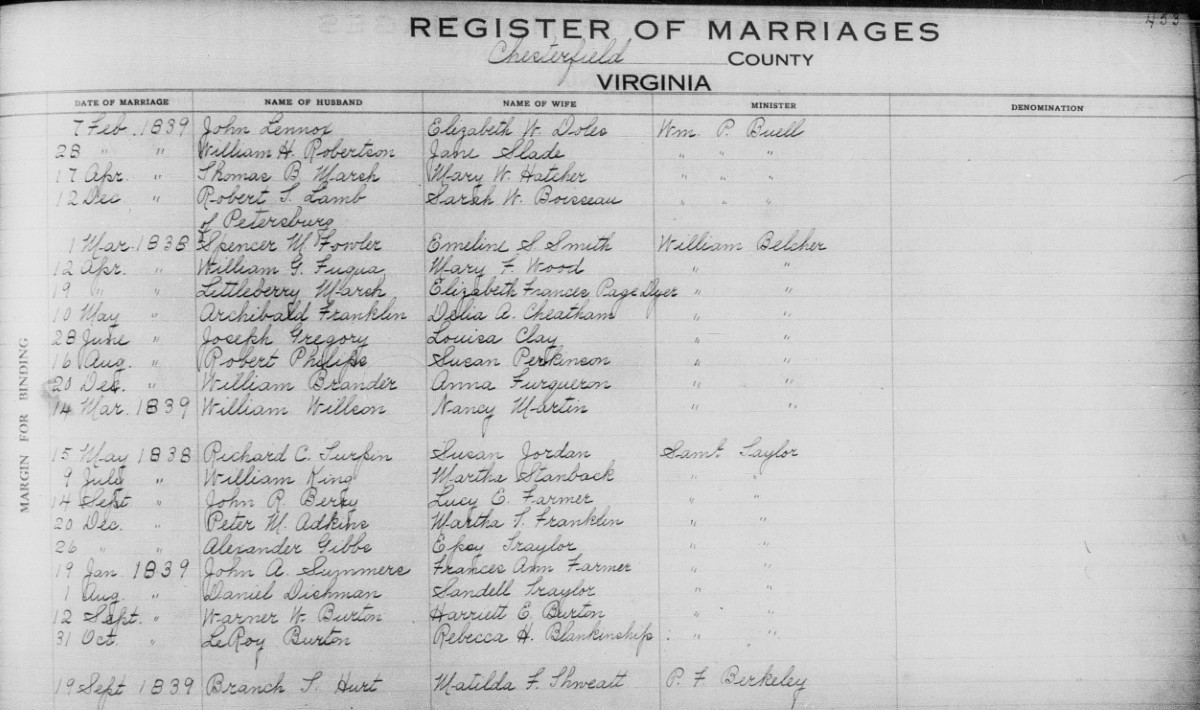 453
REGISTER OF MARRIAGES
Chesterfield COUNTY
VIRGINIA
DATE OF MARRIAGE NAME OF HUSBAND NAME OF WIFE MINISTER DENOMINATION
7 Feb. 1839 John Lennox Elizabeth W. Doles Wm. P. Buell
28 " " William H. Robertson Jane Slade " " "
17 Apr. " Thomas B. Marsh Mary W. Hatcher " " "
12 Dec " Robert T. Lamb Sarah W. Boisseau " " "
of Petersburg
1 Mar. 1838 Spencer M. Fowler Emeline S. Smith William Belcher
12 Apr. " William G. Fuqua Mary F. Wood " "
19 " " Littleberry Marsh Elizabeth Frances Page Dyer " "
10 May " Archibald Franklin Delia A. Cheatham " "
28 June " Joseph Gregory Louisa Clay " "
16 Aug. " Robert Philips Susan Perkinson " "
20 Dec. " William Brander Anna Furqueron " "
14 Mar. 1839 William Willson Nancy Martin " "
15 May 1838 Richard C. Turpin Susan Jordan Saml. Taylor
9 July " William King Martha Stanback " "
14 Sept " John R. Berry Lucy E. Farmer " "
20 Dec. " Peter M. Adkins Martha T. Franklin " "
26 " " Alexander Gibbs Epsy Traylor " "
19 Jan 1839 John A. Summers Frances Ann Farmer " "
1 Aug. " Daniel Dishman Sandell Traylor " "
12 Sept. " Warner W. Burton Harriett E. Burton " "
31 Oct. " LeRoy Burton Rebecca H. Blankinship " "
19 Sept 1839 Branch T. Hurt Matilda F. Thweatt P. F. Berkeley
MARGIN FOR BINDING